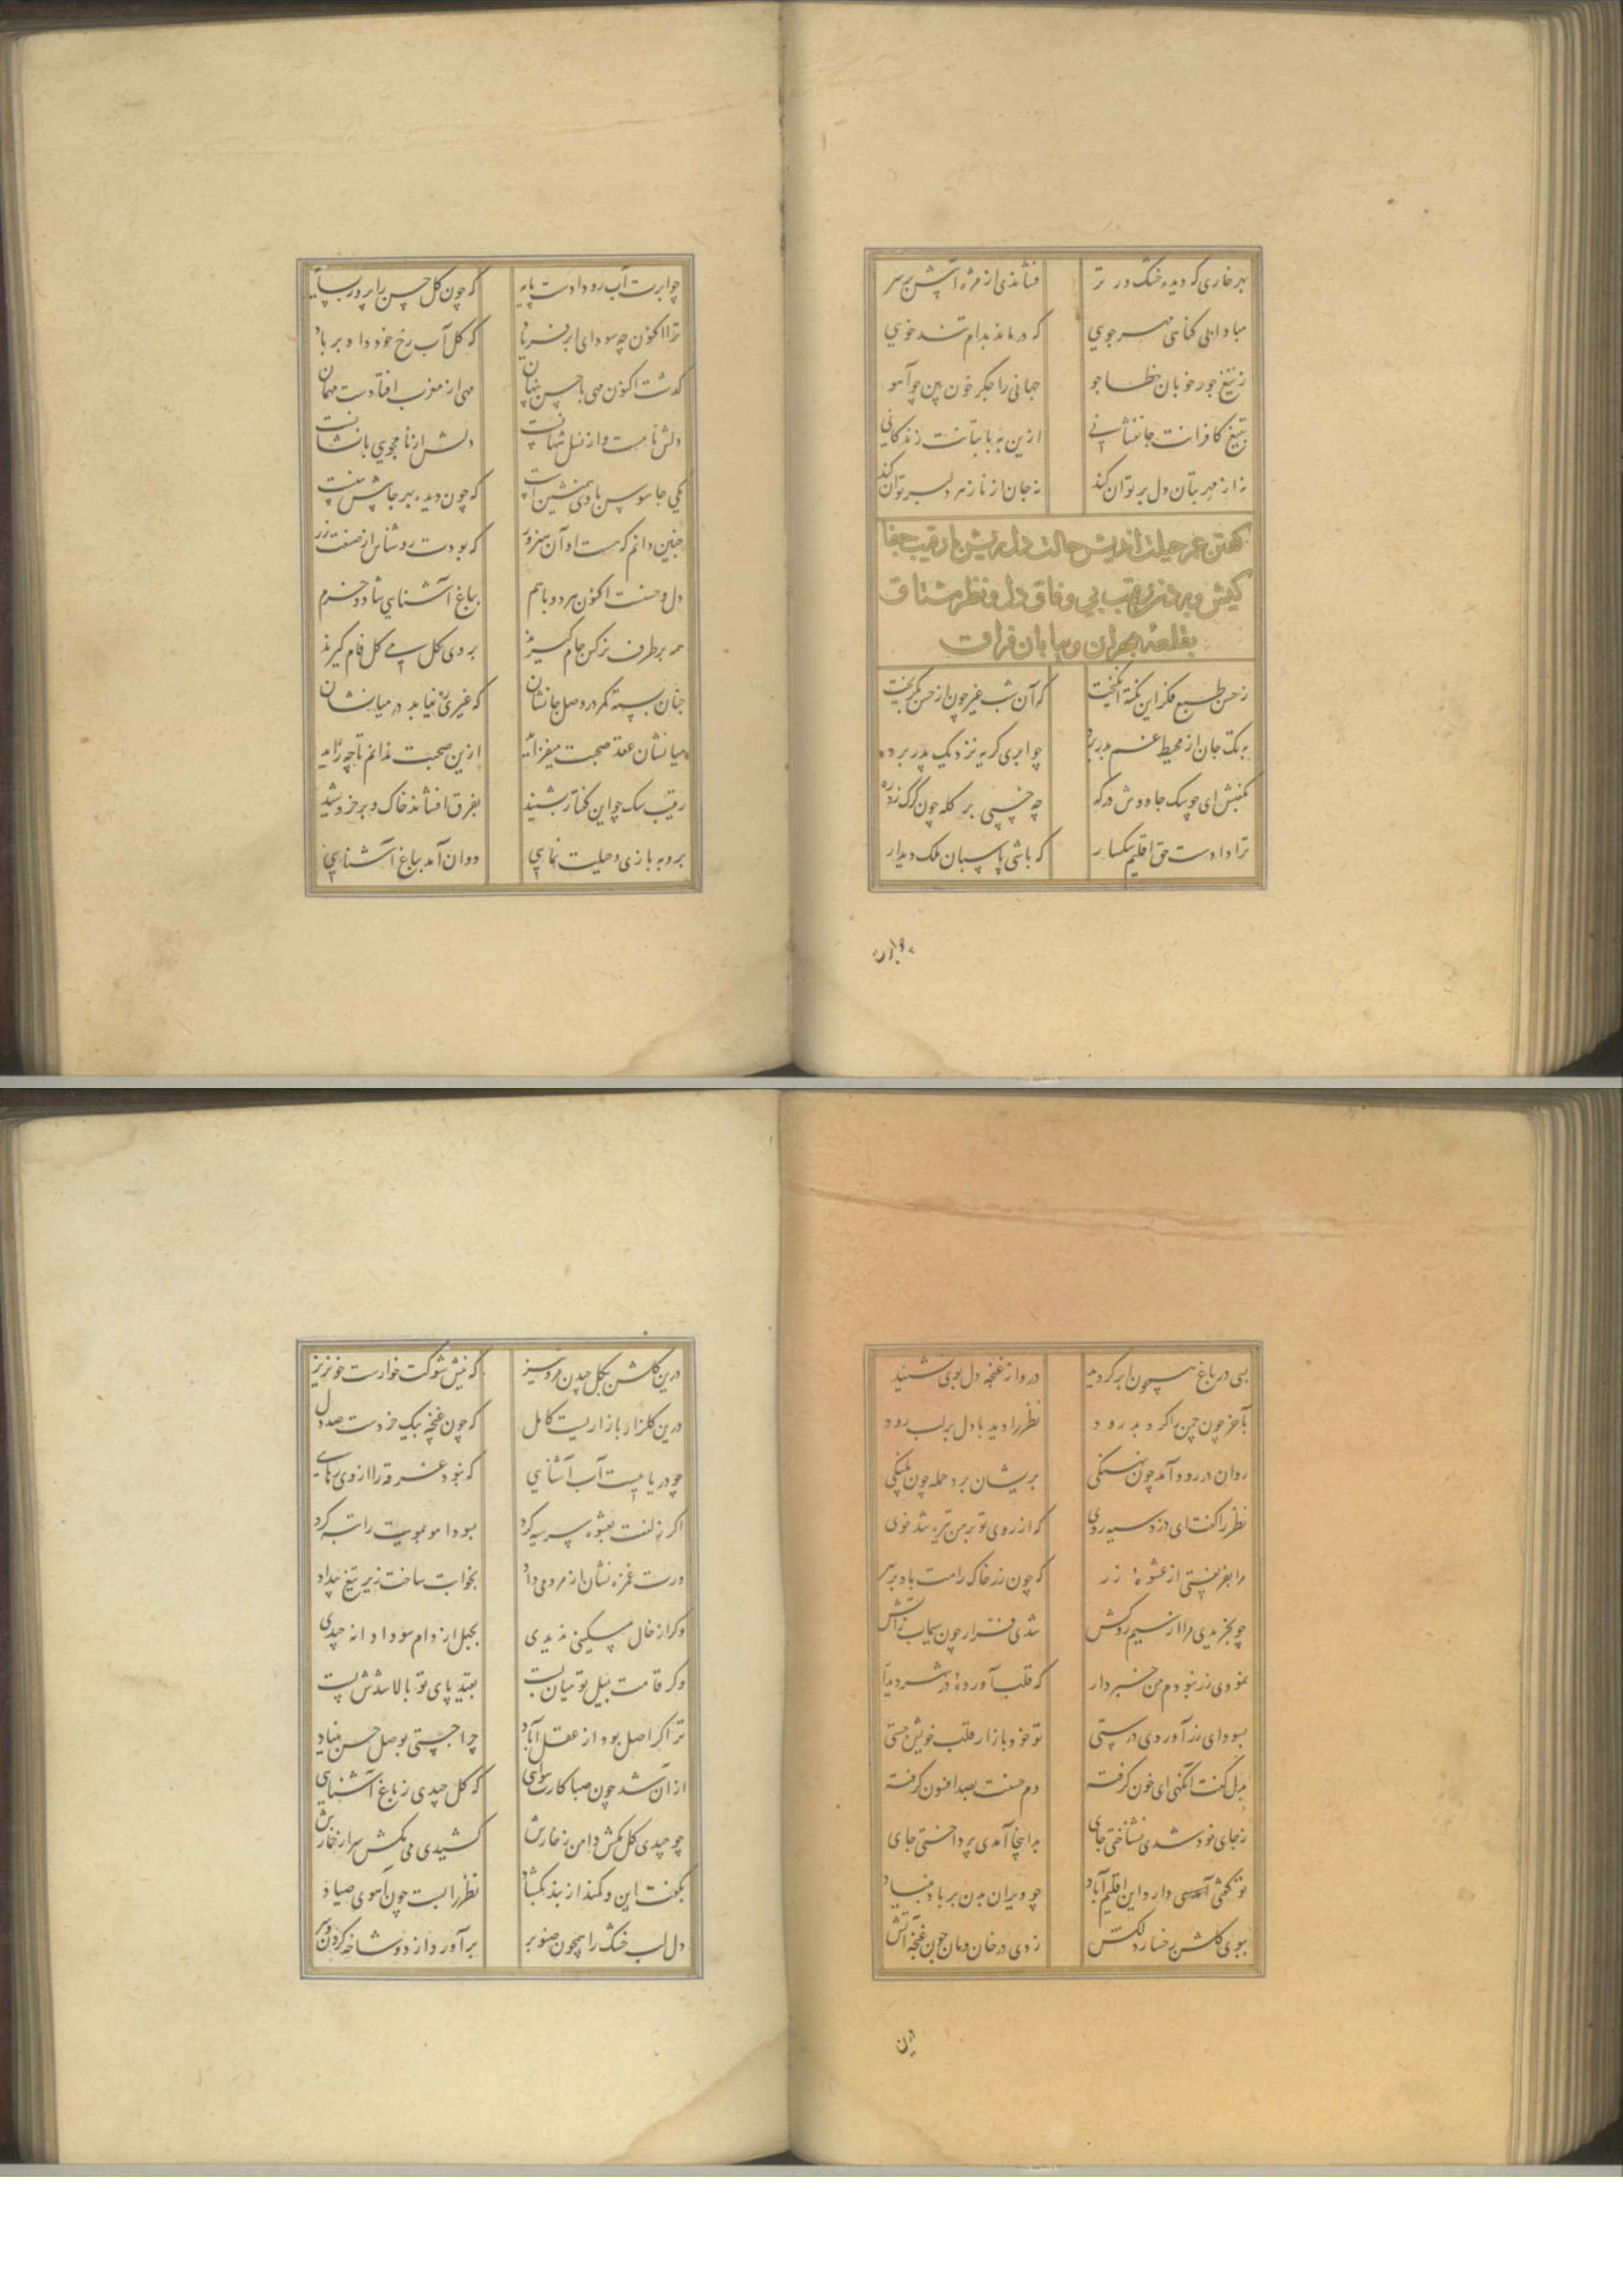 بهر خاری که دیده خشک ور تر
فشاندی از مژه آتش بر سر
مبادا بی کناهی مهرجوی
که درماند بدام تند خوی
ز تیغ جور خوبان خطا جو
جهانی را جکر خون بین چو آهو
بتیغ کافرانت جانفشانی
ازین به با بتانت زندکانی
نه از مهر بتان دل بر توان کند
نه جان از ناز هر دلبر توان کند
کفتن غمز حیلت اندیش حالت دل ریش با رقیب جفا
کیش و بردن رقیب بی وفاق دل و نظر مشتاق
بقلعه هجران و بیابان فراق
ز حسن طبع فکر این نکته انکیخت
که آن شب غمز چون از حسن بکریخت
به تک جان از محیط غم بدر برد
چو ابری کریه نزدیک پدر برد
بکفتش ای چو سک جاووش درکه
چه خسپی بر کله چون کرک زد ره
ترا دادست حق اقلیم تکسار
که باشی پاسبان ملک دیدار
چو ابرت آب رو دادست پایه
که چون کل حسن را پرور بسایه
ترا اکنون چه سود ای ابر فریاد
که کل آب رخ خود داد بر باد
کذشت اکنون مهی با حسن پنهان
مهی از مغرب افتادست مهمان
دلش نامست و از نسل شهانست
دلش از نامجوی بانشانست
یکی جاسوس با وی همنشین است
که چون دیده بهر جایش ببینست
چنین دانم که هست او آن هنرور
که بودت روشناس از صنعت زر
دل و حسنت اکنون هر دو باهم
بباغ آشنایی شاد و خرم
همه بر طرف نرکس جام کیرند
بروی کل می کلفام کیرند
چنان بسته کمر در وصل جانشان
که غیری ره نیابد در میانشان
میانشان عقد صحبت میفزاید
ازین صحبت ندانم تا چه زاید
رقیب سک چو این کفتار بشنید
بفرق افشاند خاک و بر خروشید
بروبه بازی و حیلت نمایی
دوان آمد بباغ آشنایی
دوان
بسی در باغ همچون ابر کردید
در و از غنچه دل بوی شنید
بآخر چون چمن را کرد بدرود
نظر را دید با دل بر لب رود
روان در رود آمد چون نهنکی
بریشان برد حمله چون پلنکی
نظر را کفت ای دزد سیه روی
که از روی تو بر من تیره شد خوی
مرا بفریفتی از عشوهٔ زر
که چون زر خاک راهت باد بر سر
چو بخریدی مرا از سیم روکش
شدی فرار چون سیماب ز آتش
نمودی زر نبودم من خبردار
بسودای زر آوردی درستی
تو خود بازار قلب خویش جستی
بدل کفت آنکهی ای خون کرفته
دم حسنت بصد افسون کرفته
ز جای خود شدی نشناختی جای
بدانجا آمدی پرداختی جای
چو ویران بدن بر باد بنیاد
ببوی کلشن رخسار دلکش
زدی در خان و مان چون غنچه آتش
درین کلشن بکل چیدن مرو تیز
که نیش شوکت خارست خونریز
درین کلزار بازاریست کامل
که چون غنچه بیک خردست صد دل
چو دریاییست آب آشنایی
که نبود غرقه را از وی رهایی
اکر زلفت بعشوه سر سیه کرد
بسودا مو بمویت را تبه کرد
ورت غمزه نشان از مردمی داد
بخوابت ساخت زیر تیغ بیداد
وکر از خال مسکینی ندیدی
بجیل از دام سودا دانه چیدی
وکر قامت بنیل تو میان بست
بقید پای تو بالا شدش پست
ترا کر اصل بود از عقل آباد
چرا جستی بوصل حسن بنیاد
از آن شد چون صبا کارت هوایی
که کل چیدی ز باغ آشنایی
چو چیدی کل بکش دامن ز خارش
کشیدی می بکش سر از خمارش
بکفت این و کمند از بند بکشاد
نظر را بست چون آهوی صیاد
دل لب خشک را همچون صنوبر
برآورد از دو شاخه کردن و بر
درین